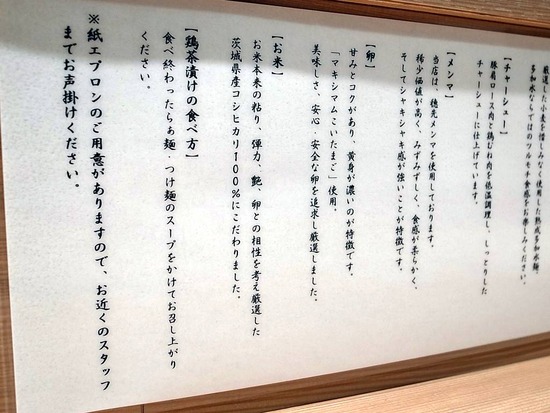 厳選した小麦を惜しみなく使用した熟成多加水麺。
多加水ならではのツルモチ食感をお楽しみください。
【チャーシュー】
豚肩ロース肉と鶏むね肉を低温調理し、しっとりした
チャーシューに仕上げています。
【メンマ】
当店は、穂先メンマを使用しております。
稀少価値が高く、みずみずしく、食感が柔らかく、
そしてシャキシャキ感が強いことが特徴です。
【卵】
甘みとコクがあり、黄身が濃いのが特徴です。
「マキシマムこいたまご」使用。
美味しさ、安心・安全な卵を追求し厳選しました。
【お米】
お米本来の粘り、弾力、艶、卵との相性を考え厳選した
茨城県産コシヒカリ100%にこだわりました。
【鶏茶漬けの食べ方】
食べ終わったらぁ麺・つけ麺のスープをかけてお召し上がり
ください。
※紙エプロンのご用意がありますので、お近くのスタッフ
までお声掛けください。